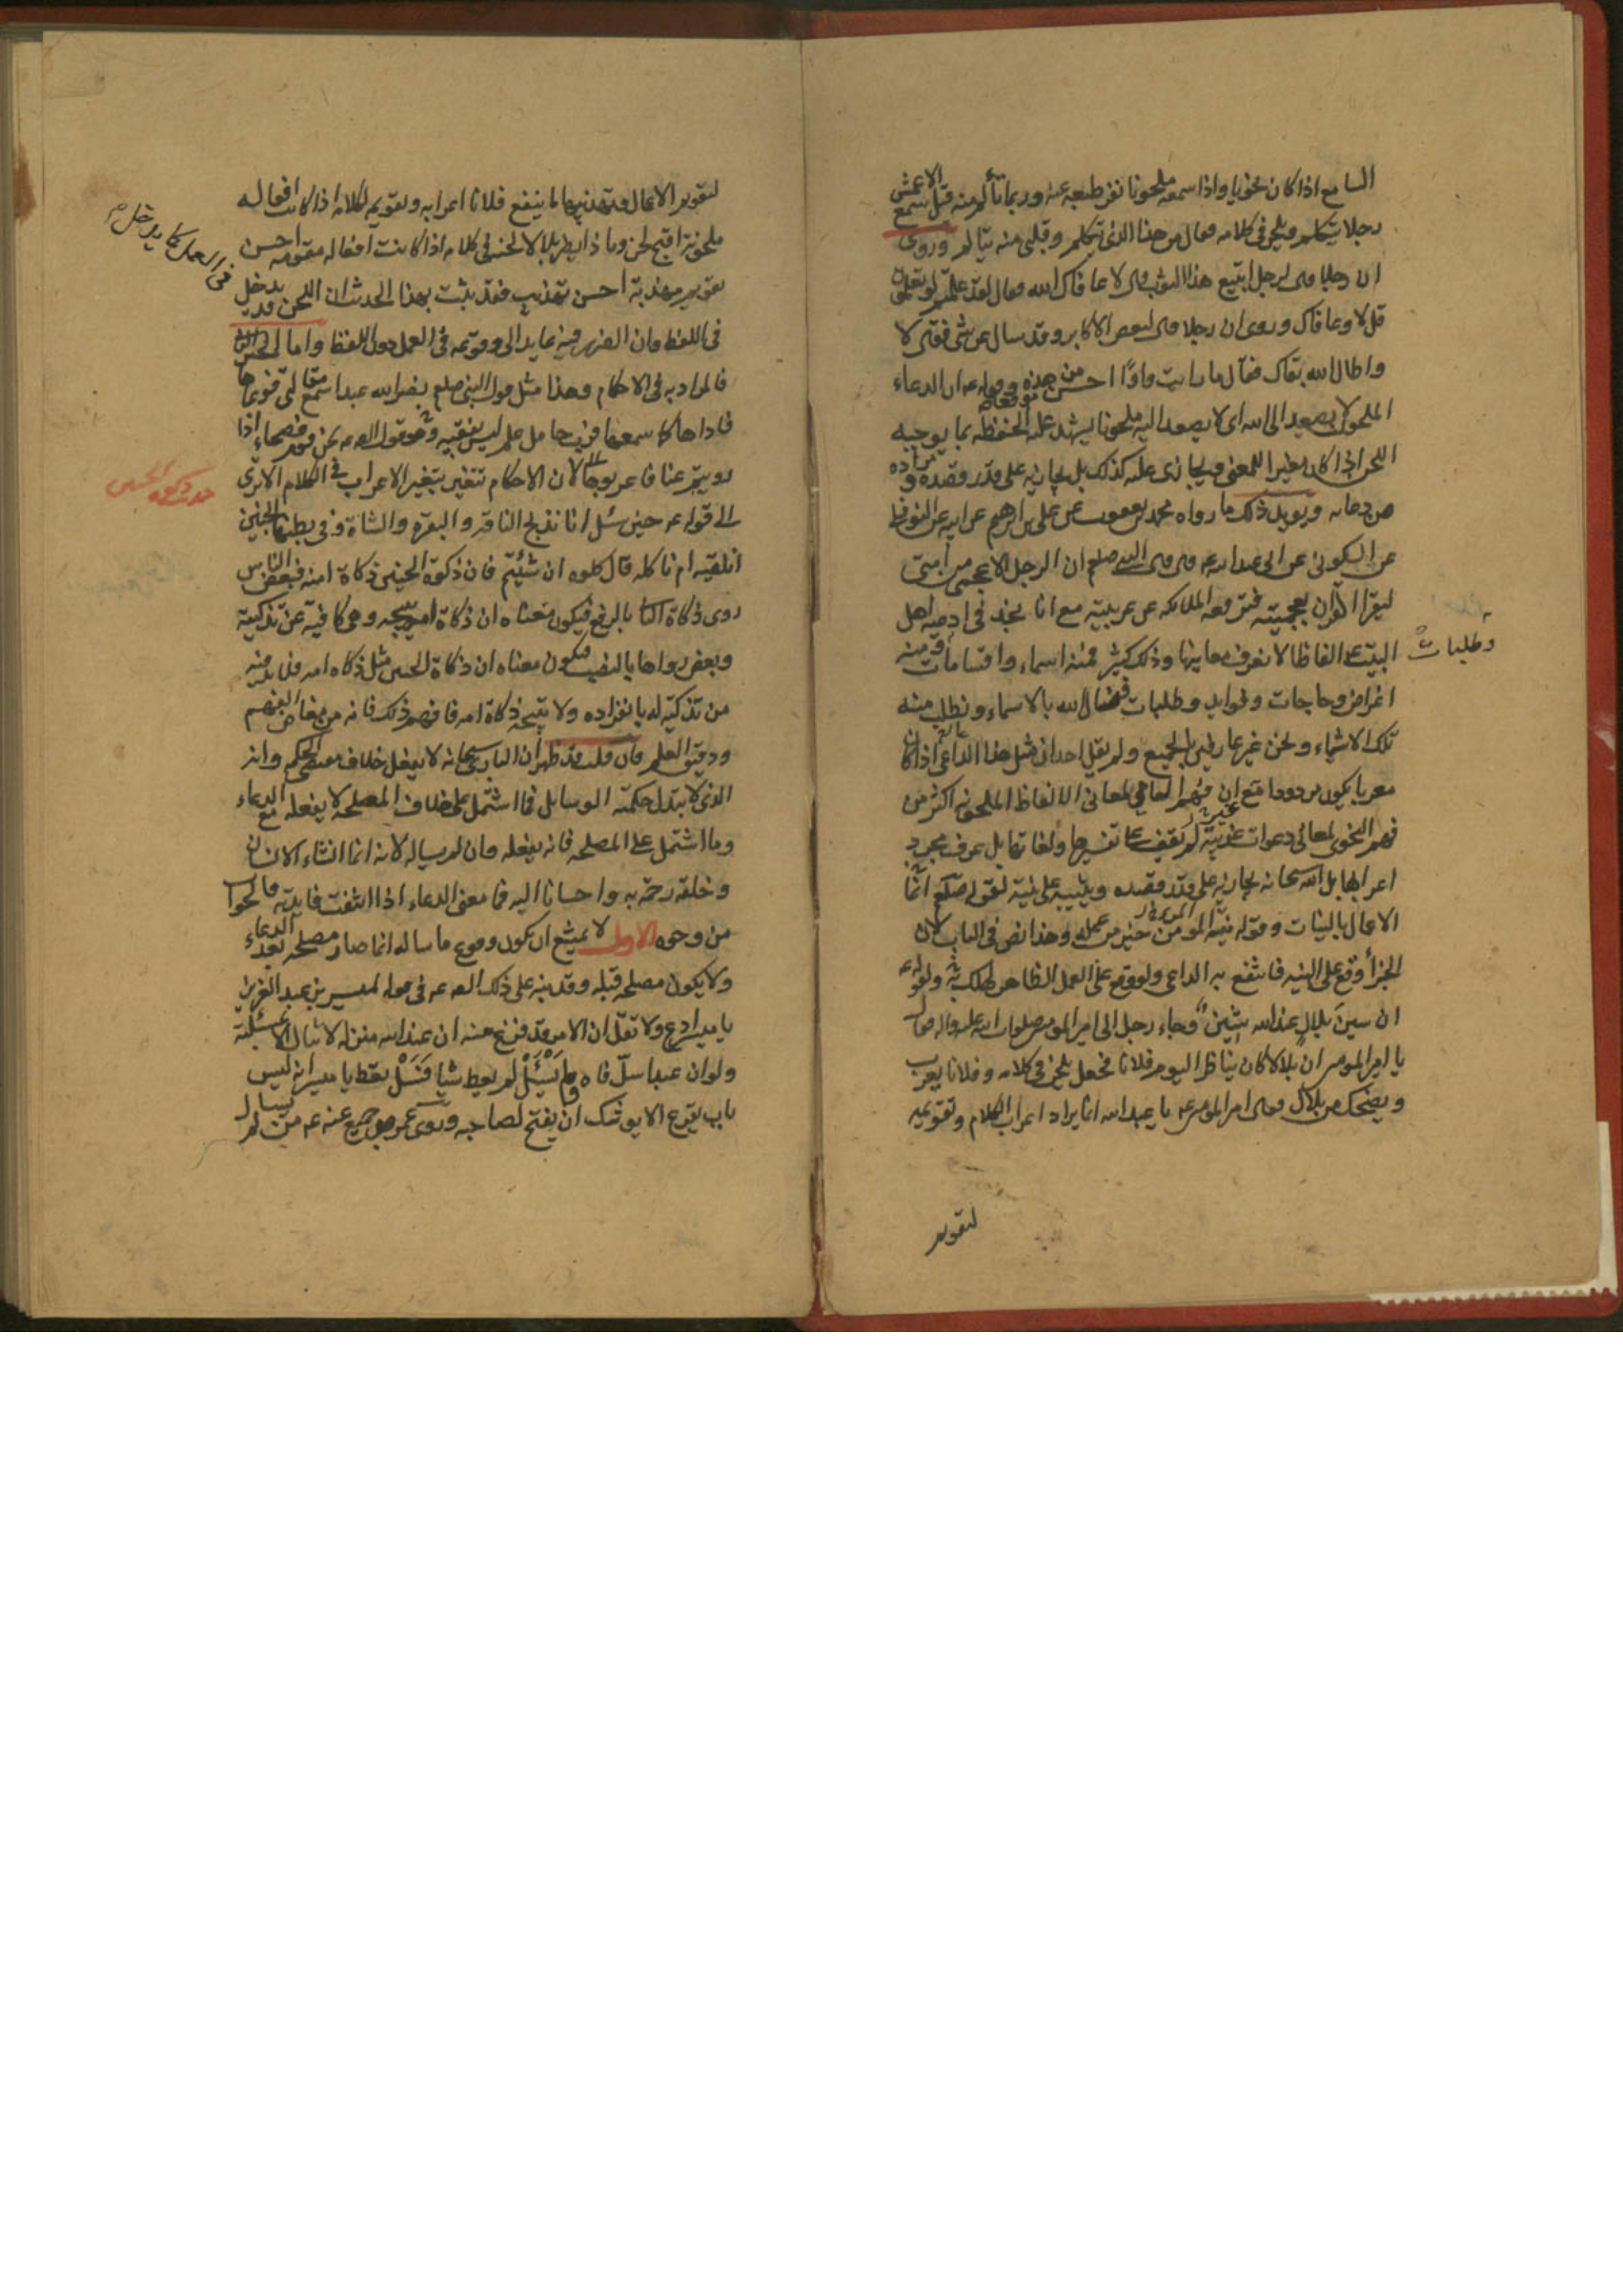 السامع اذا كان نحويا واذا سمعه ملحونا نفر طبعه عنه وربما تألم منه قيل سمع الاعمش
رجلا يتكلم ويلحن فى كلامه فعال من هذا الذى يتكلم وقلبى منه يتالم وروى
ان رجلا قال لرجل اتبيع هذا الثوب قال لا عافاك الله فعال لقد علمتم لو تعلمون
قل لا وعافاك وروى ان رجلا قال لبعض الاكابر وقد سال عن شى فقال لا
واطال الله بقاك فقال ما رايت واوًا احسن موقعا من هذه وقوله عه ان الدعاء
الملحون لا يصعد الى الله اى لا يصعد اليه ملحونا يشهد عليه الحفظه بما يوجبه
اللحن اذا كان مغيرا للمعنى ويجازى عليه كذلك بل يجازيه على قدر قصده ومراده
من دعائه ويؤيد ذلك ما رواه محمد بن يعقوب عن على بن ابرهيم عن ابيه عن النوفلى
عن السكونى عن ابى عبدالله عه قال قال النبى صلعم ان الرجل الاعجمى من امتى
ليقرا القران بعجميته فترفعه الملائكه على عربيته مع انا نجد فى ادعيه اهل
البيت ع الفاظا لا نعرف معاينها وذلك كثير فمنه اسماء واقسامات ومنه
اغراض وحاجات وفوايد وطلبات فنسال الله بالاسماء ونطلب منه
وطلبات
تلك الاشياء ونحن غير عارفين بالجميع ولم يقل احد ان مثل هذا الدعا اذا كان
معربا يكون مردودا مع ان فهم العامى لمعانى الالفاظ الملحونه اكثر من
فهم النحوى لمعانى دعوات عربية لم يقف على تفسيرها ولغاتها بل عرف مجرد
اعرابها بل الله سبحانه يجازيه على قدر قصده ويثيبه على نيته لقوله صلعم انما
الاعمال بالنيات وقوله نية المومن خير من عمله وهذا نص فى الباب لان
الجزأ وقع على النيه فانتفع به الداعى ولو وقع على العمل الظاهر لهلك ولقوله عه
ان سين بلال عند الله شين وجاء رجل الى امير المومنين صلوات الله عليه واله فعال
يا امير المومنين ان بلالا كان يناظر اليوم فلانا فجعل يلحن فى كلامه وفلانا يعرب
ويضحك من بلال فعال امير المومنين عه يا عبد الله انما يراد اعراب الكلام وتقويمه
لتقويم
لتقويم الاعمال وتهذيبها ما ينفع فلانا اعرابه وتقويمه لكلامه اذا كانت افعاله
ملحونة اقبح لحن وما ذا يضر بلالا لحنه فى كلامه اذا كانت افعاله مقومه احسن
تقويم مهذبة احسن تهذيب فقد ثبت بهذا الحديث ان اللحن قد يدخل
فى العمل كما يدخل
فى اللفظ وان الضرر فيه عايد الى وقوعه فى العمل دون اللفظ واما الخبر
فالمراد به فى الاحكام وهذا مثل قول النبى صلعم نضر الله عبدا سمع مقالتى فوعاها
فاداها كما سمعها فرب حامل علم ليس بفقيه وهو قول العه نحن قوم فصحاء اذا
رويتم عنا فاعربوها لان الاحكام تتغير بتغير الاعراب فى الكلام الا ترى
حديث ذكوة الجنين
الى قوله عه حين سئل انا نذبح الناقه والبقره والشاة وفى بطنها الجنين
انلقيه ام ناكله قال كلوه ان شئتم فان ذكوة الجنين ذكاة امه فبعض الناس
روى ذكاة الثا بالرفع فيكون معناه ان ذكاة امه تبيحه وهى كافية عن تذكيته
وبعض رواها بالنصب فيكون معناه ان ذكاة الجنين مثل ذكاه امه فلا بد فيه
من تذكية له بانفراده ولا تبيحه ذكاة امه فافهم ذلك فانه من مغاص الفهم
ودقيق العلم فان قلت قد ظهر ان البارى سبحانه لا يفعل خلاف مقتضى الحكم وانه
الذى لا تبدل حكمته الوسايل فما اشتمل على خلاف المصلحه لا يفعله مع الدعاء
وما اشتمل على المصلحه فانه يفعله وان لم يساله لانه انما انشاء الانسان
وخلقه رحمة به واحسانا اليه فما معنى الدعاء اذا انتفت فايدته فالجواب
من وجوه الاول لا يمتنع ان يكون وقوع ما ساله انما صار مصلحه بعد الدعاء
ولا يكون مصلحه قبله وقد نبه على ذلك العه عه فى قوله لميسر بن عبد العزيز
يا ميسر ادع ولا تقل ان الامر قد فرغ منه ان عند الله منزله لا تنال الا بمسئلة
ولو ان عبدا سدّ فاه ولم يسئل لم يعط شيا فسل تعط يا ميسر انه ليس
باب يقرع الا يوشك ان يفتح لصاحبه وروى عمرو بن جميع عنه عه من لم يسال